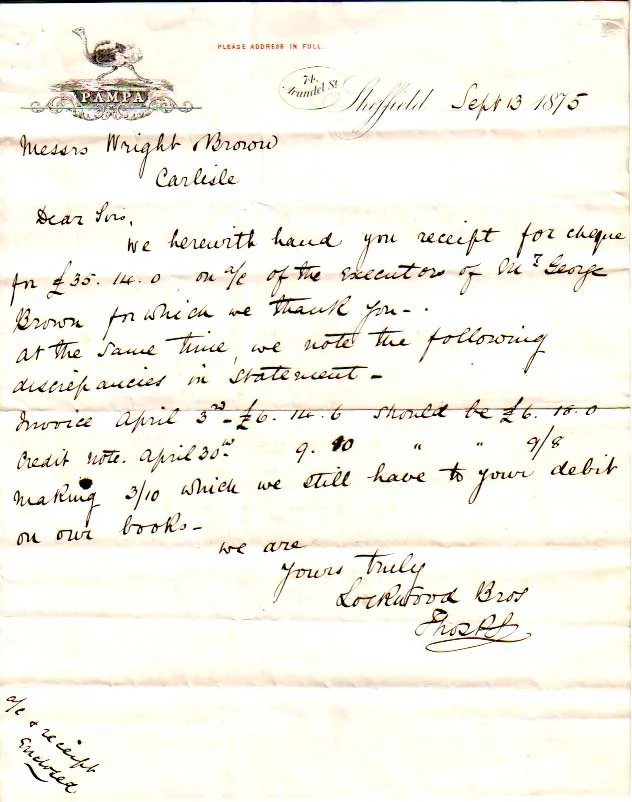 PLEASE ADDRESS IN FULL.
PAMPA
74. Arundel St.
Sheffield Sept 13 1875
Messrs Wright & Brown
Carlisle
Dear Sirs,
We herewith hand you receipt for cheque
for £35. 14. 0 on a/c of the Executors of Mr George
Brown for which we thank you -.
at the same time, we note the following
discrepancies in Statement -
Invoice April 3rd - £6. 14. 6 should be £6. 18. 0
Credit note. April 30th - 9. 10 " " 9/8
Making 3/10 which we still have to your debit
on our books -
We are
Yours truly
Lockwood Bros
a/c & receipt
Enclosed